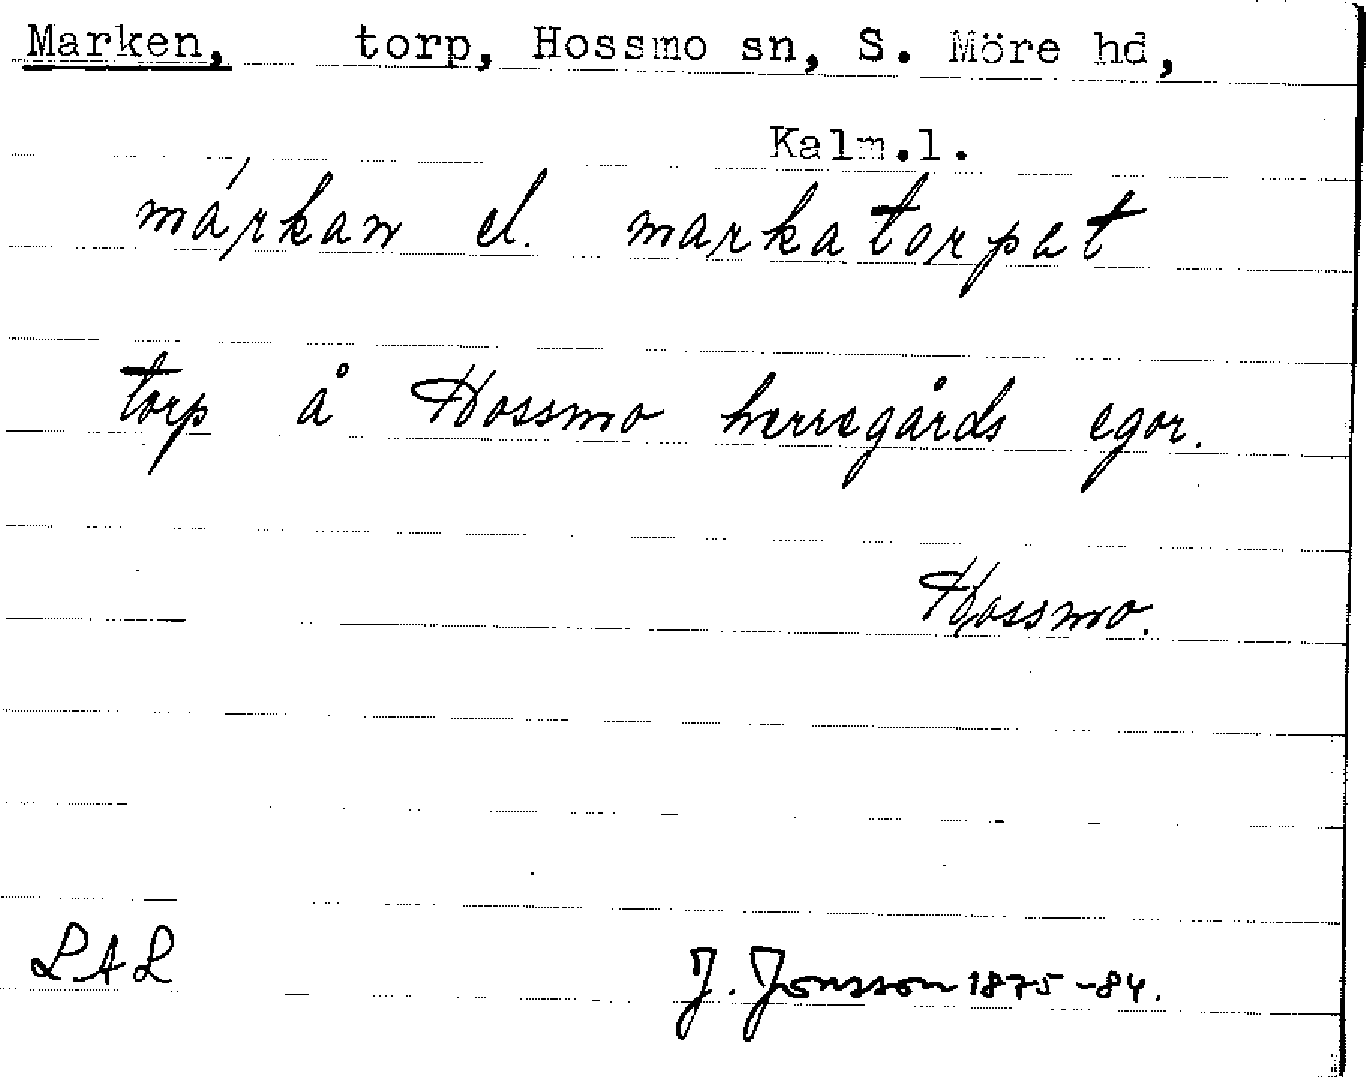 Marken, torp, Hossmo sn, S. Möre hd,
Kalm.l.
márkan el. markatorpet
torp å Hossmo herregårds egor.
Hossmo.
LAL
J. Jonsson 1875-84.